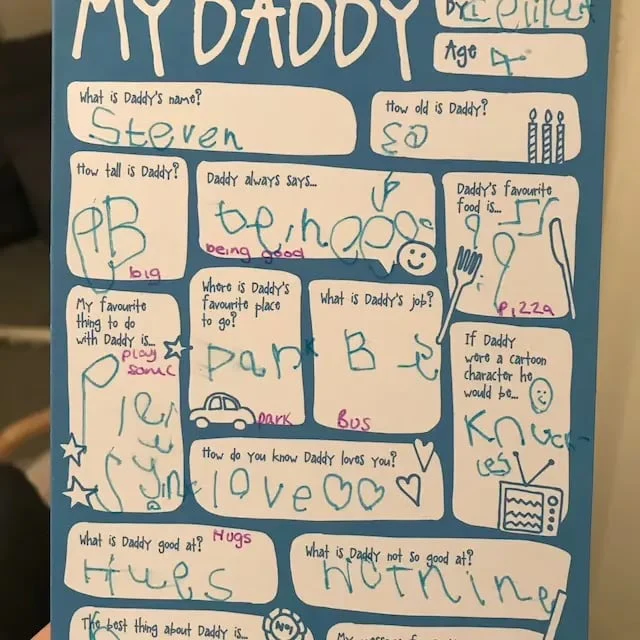 MY DADDY
By
Age 4
What is Daddy's name?
Steven
How old is Daddy?
How tall is Daddy?
big
Daddy always says...
being good
being good
Daddy's favourite
food is...
Pizza
My favourite
thing to do
with Daddy is...
play
sonic
Where is Daddy's
favourite place
to go?
park
park
What is Daddy's job?
Bus
If Daddy
were a cartoon
character he
would be...
Knuck-
les
How do you know Daddy loves you?
love
What is Daddy good at?
Hugs
Hugs
What is Daddy not so good at?
Nothing
The best thing about Daddy is...
No1